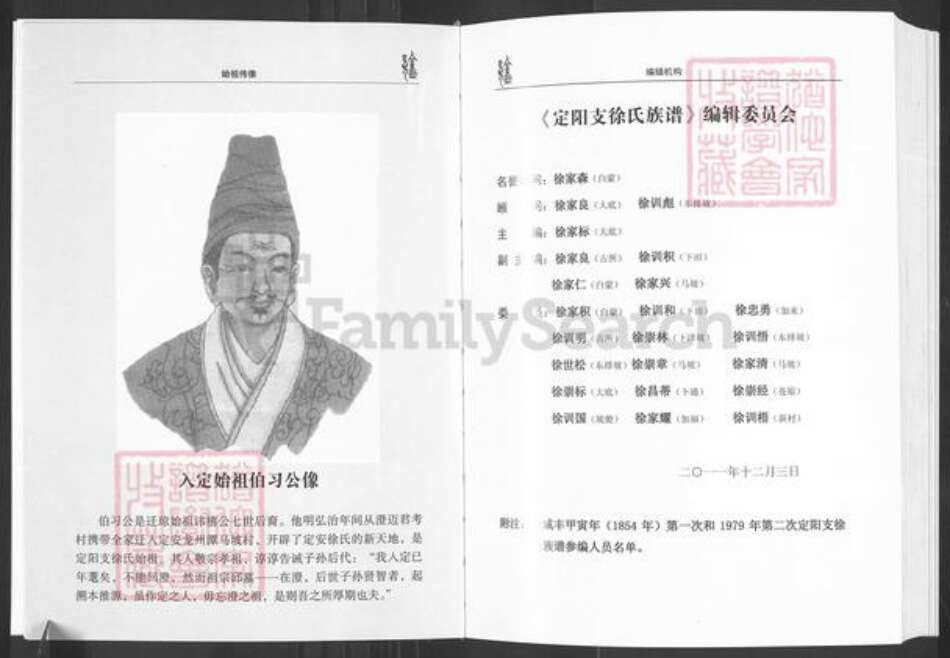 始祖传像
入定始祖伯习公像
伯习公是迁琼始祖讳禧公七世后裔。他明弘治年间从澄迈君考
村携带全家迁入定安龙州潭马坡村，开辟了定安徐氏的新天地，是
定阳支徐氏始祖。其人敬宗孝祖，谆谆告诫子孙后代：“我入定已
年耄矣，不能回澄，然而祖宗邱墓——在澄，后世子孙贤智者，起
溯本推源，虽作定之人，毋忘澄之祖，是则吾之所厚期也夫。”
编辑机构
《定阳支徐氏族谱》编辑委员会
名誉 问：徐家森（白蒙）
顾 问：徐家良（大底） 徐训彪
主 编：徐家标（大底）
副主编：徐家良（古所） 徐训积（下田）
徐家仁（白蒙） 徐家兴（马坡）
委 徐家积（白蒙） 徐训和 徐忠勇（加来）
徐训明 徐崇林 徐训悟（东排坡）
徐世松（东排坡） 徐崇章（马坡） 徐家清（马坡）
徐崇标（大底） 徐昌蒂（卜通） 徐崇经
徐训国 徐家耀 徐训梧（新村）
二〇一一年十二月三日
附注： 咸丰甲寅年（1854 年）第一次和 1979 年第二次定阳支徐
族谱参编人员名单。
FamilySearch